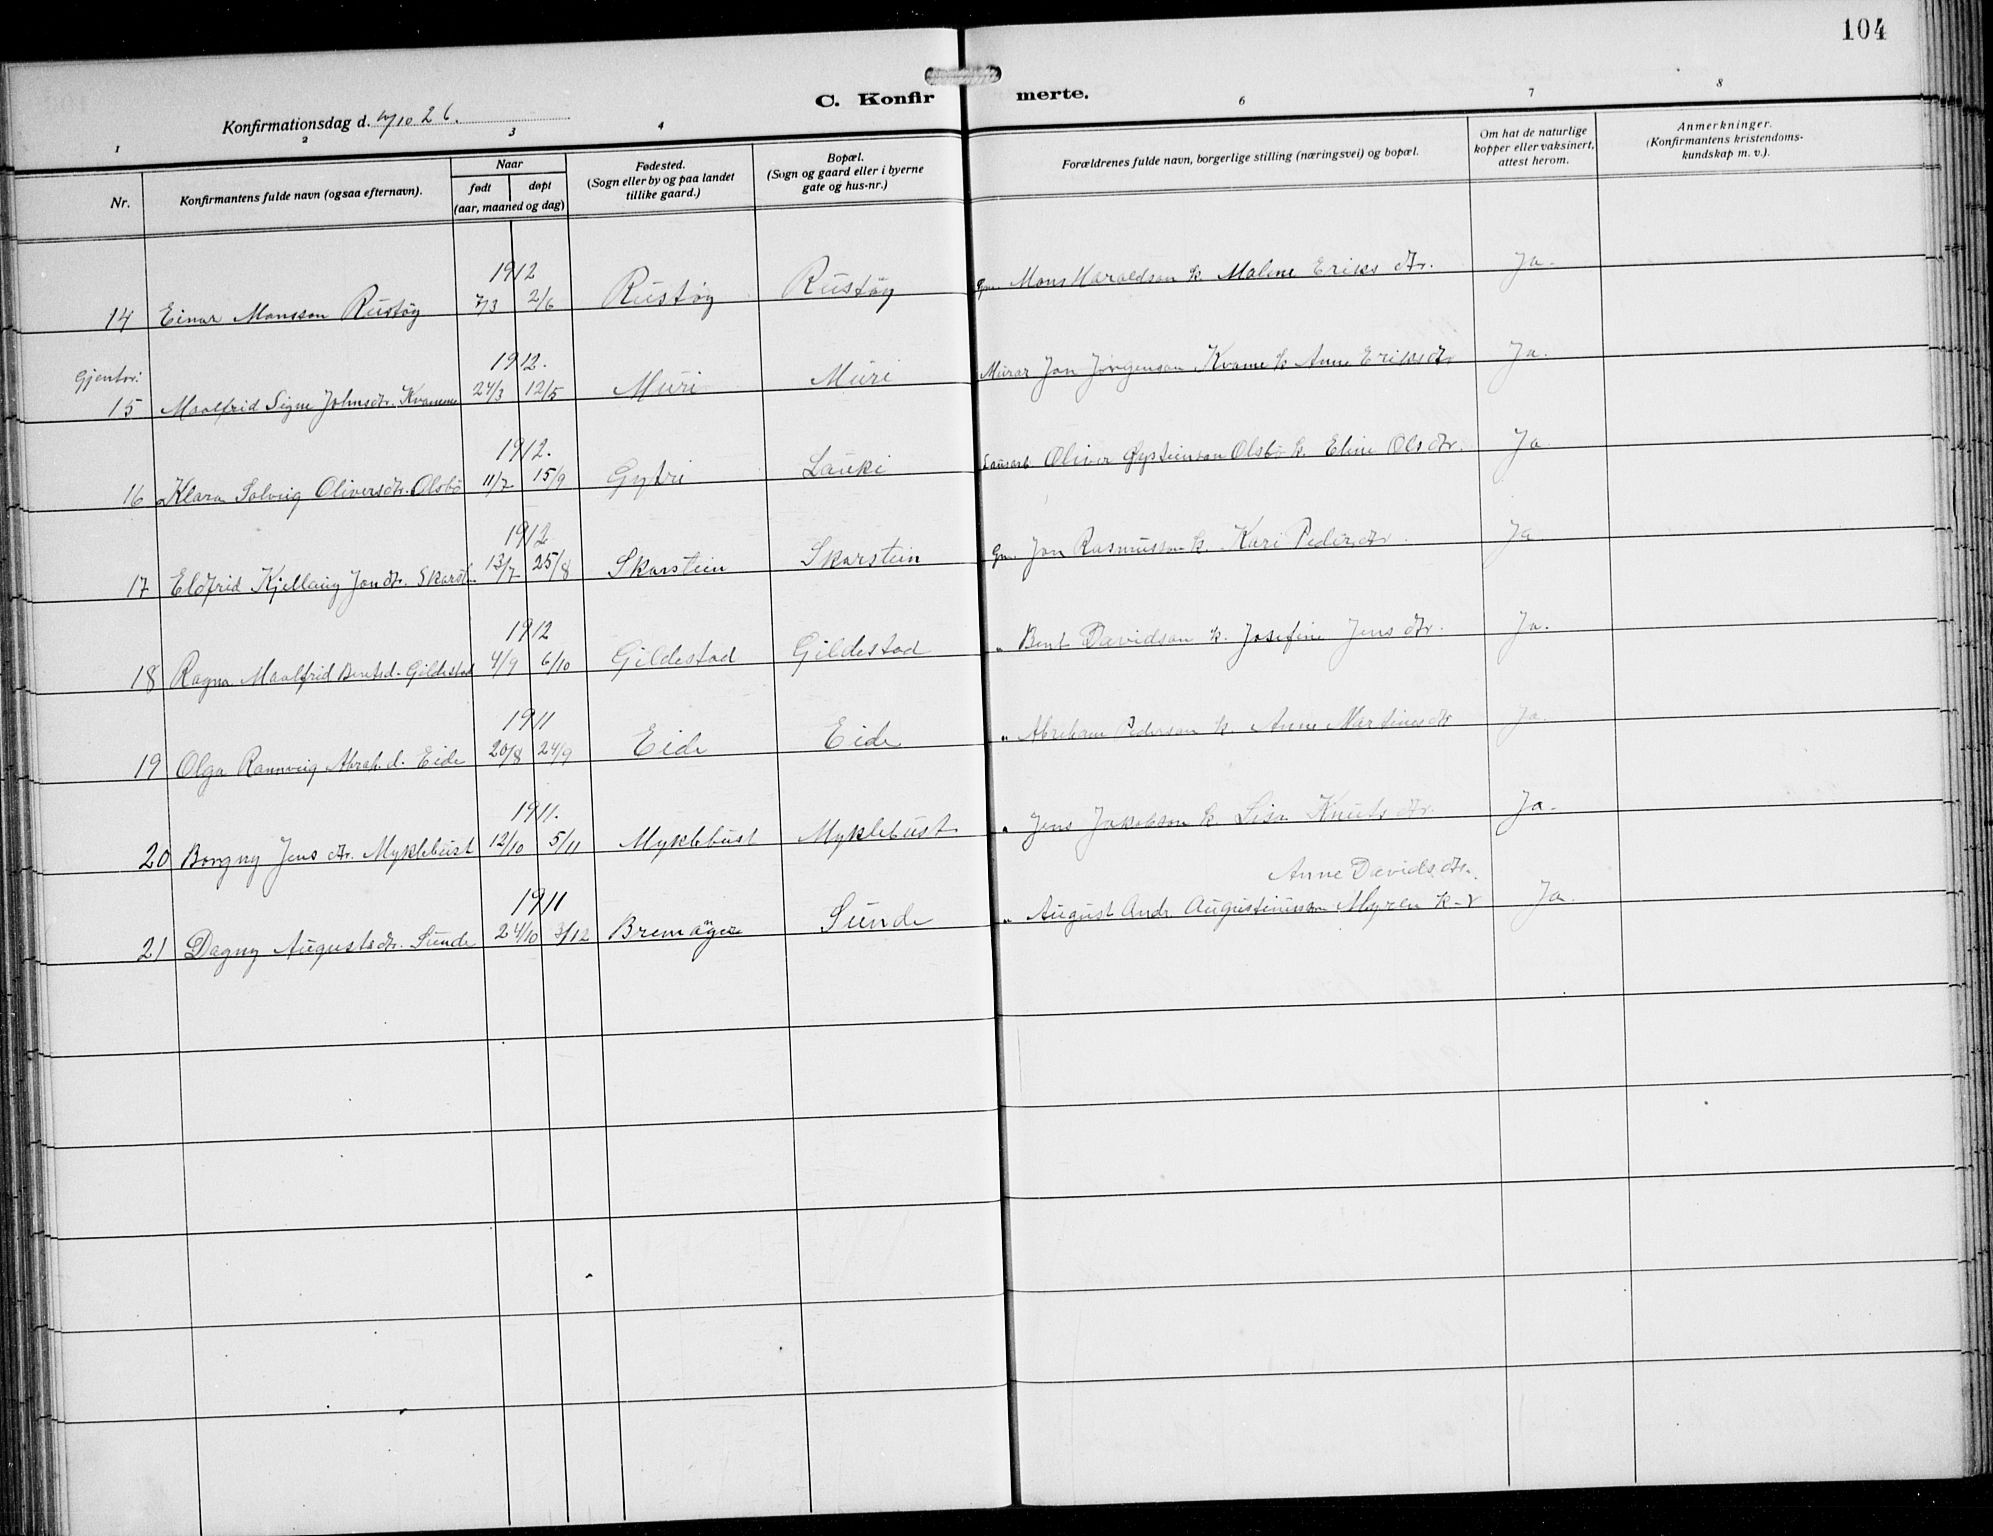 104
C. Konfirmerte.
Konfirmationsdag d. /10 26.
1 2 3 4 6 7 8
Nr.
Konfirmantens fulde navn (ogsaa efternavn).
Naar
født døpt
(aar, maaned og dag)
Fødested.
(Sogn eller by og paa landet
tillike gaard.)
Bopæl.
(Sogn og gaard eller i byerne
gate og hus-nr.)
Forældrenes fulde navn, borgerlige stilling (næringsvei) og bopæl.
Om hat de naturlige
kopper eller vaksinert,
attest herom.
Anmerkninger.
(Konfirmantens kristendoms-
kundskap m. v.).
1912
14 Einar Monsson Rustøy 7/3 2/6 Rustøy Rustøy Gm. Mons Haraldson k. Malene Eriks dtr. Ja.
Gjentor:
1912.
15 Maalfrid Signe Johnsdtr. Kvamme 24/3 12/5 Muri Muri Murar Jon Jørgenson Kvame k. Anne Eriksdtr Ja.
1912.
16 Klara Solveig Oliversdtr. Olsbø 11/7 15/9 Gytri Lauki Oliver Øysteinson Olsbø k. Eline Olsdtr. Ja
1912
17 Eldfrid Kjellaug Jondtr. Skarst. 13/7 25/8 Skarstein Skarstein Gm. Jon Rasmusson k. Kari Pedersdtr. Ja
1912
18 Ragna Maalfrid Bentsd. Gildestad 4/9 6/10 Gildestad Gildestad " Bent Davidson k. Josefine Jens dtr. Ja.
1911
19 Olga Rannveig Abrah.d. Eide 20/8 24/9 Eide Eide " Abraham Pederson k. Anne Martinusdtr Ja
1911.
20 Borgny Jens dtr. Myklebust 12/10 5/11 Myklebust Myklebust " Jens Jakobson k. Lisa Knuts dtr. Ja.
Anne Davids.dtr.
1911
21 Dagny Augustsdtr. Sunde 24/10 3/12 Bremøger Sunde " August Andr. Augustinusson Myren k Ja.